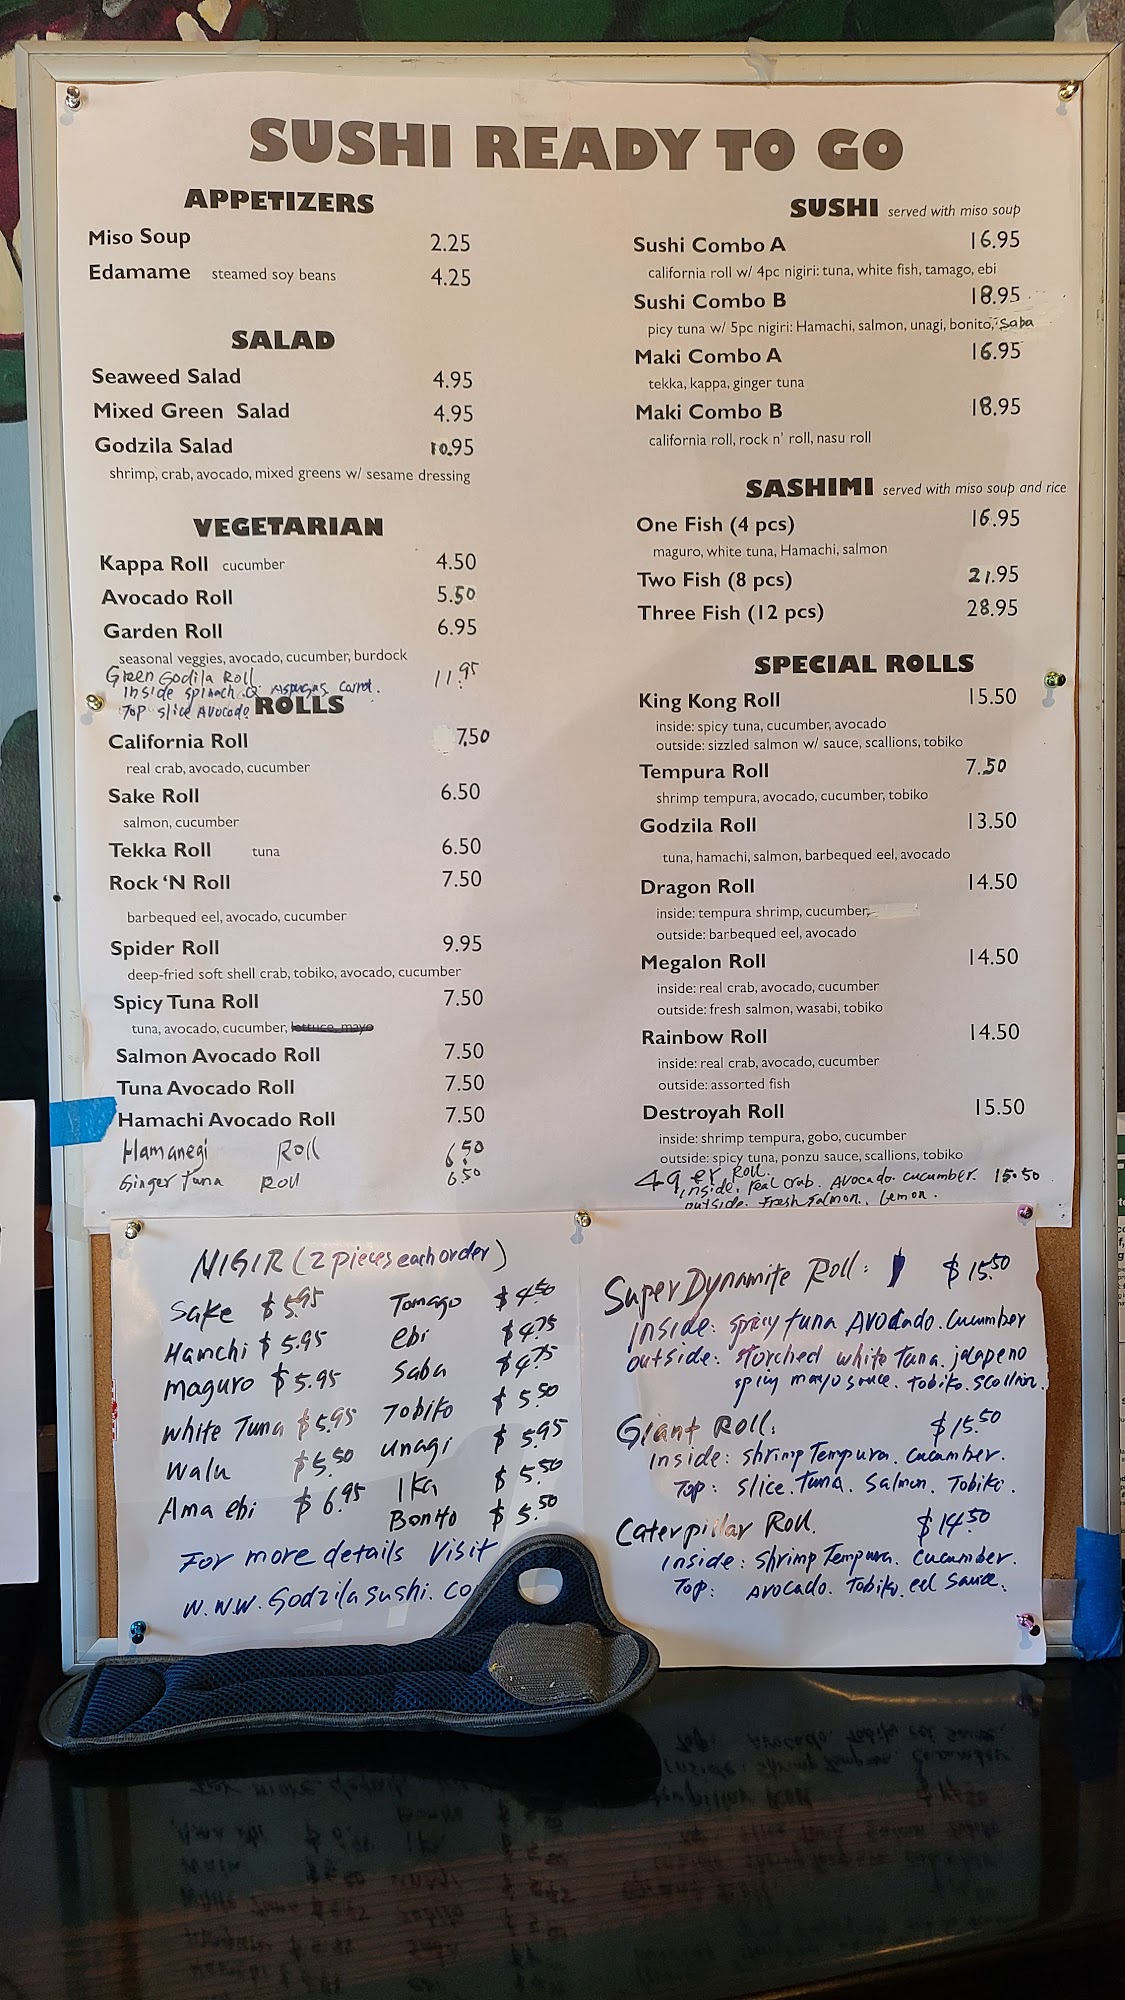 SUSHI READY TO GO
APPETIZERS
Miso Soup 2.25
Edamame steamed soy beans 4.25
SALAD
Seaweed Salad 4.95
Mixed Green Salad 4.95
Godzila Salad 10.95
shrimp, crab, avocado, mixed greens w/ sesame dressing
VEGETARIAN
Kappa Roll cucumber 4.50
Avocado Roll 5.50
Garden Roll 6.95
seasonal veggies, avocado, cucumber, burdock
Green Godila Roll 11.95
Inside spinach Aspugas Carrot.
Top slice Avocado
ROLLS
California Roll 7.50
real crab, avocado, cucumber
Sake Roll 6.50
salmon, cucumber
Tekka Roll tuna 6.50
Rock 'N Roll 7.50
barbequed eel, avocado, cucumber
Spider Roll 9.95
deep-fried soft shell crab, tobiko, avocado, cucumber
Spicy Tuna Roll 7.50
tuna, avocado, cucumber, lettuce, mayo
Salmon Avocado Roll 7.50
Tuna Avocado Roll 7.50
Hamachi Avocado Roll 7.50
Hamanegi Roll 6.50
Ginger Tuna Roll 6.50
SUSHI served with miso soup
Sushi Combo A 16.95
california roll w/ 4pc nigiri: tuna, white fish, tamago, ebi
Sushi Combo B 18.95
picy tuna w/ 5pc nigiri: Hamachi, salmon, unagi, bonito, Saba
Maki Combo A 16.95
tekka, kappa, ginger tuna
Maki Combo B 18.95
california roll, rock n' roll, nasu roll
SASHIMI served with miso soup and rice
One Fish (4 pcs) 16.95
maguro, white tuna, Hamachi, salmon
Two Fish (8 pcs) 21.95
Three Fish (12 pcs) 28.95
SPECIAL ROLLS
King Kong Roll 15.50
inside: spicy tuna, cucumber, avocado
outside: sizzled salmon w/ sauce, scallions, tobiko
Tempura Roll 7.50
shrimp tempura, avocado, cucumber, tobiko
Godzila Roll 13.50
tuna, hamachi, salmon, barbequed eel, avocado
Dragon Roll 14.50
inside: tempura shrimp, cucumber,
outside: barbequed eel, avocado
Megalon Roll 14.50
inside: real crab, avocado, cucumber
outside: fresh salmon, wasabi, tobiko
Rainbow Roll 14.50
inside: real crab, avocado, cucumber
outside: assorted fish
Destroyah Roll 15.50
inside: shrimp tempura, gobo, cucumber
outside: spicy tuna, ponzu sauce, scallions, tobiko
49er Roll.
inside. real crab. Avocado. cucumber. 15.50
outside. Fresh salmon. Lemon.
NIGIR (2 pieces each order)
Sake $5.95 Tomago $4.50
Hamchi $5.95 ebi $4.75
maguro $5.95 Saba $4.75
white Tuna $5.95 Tobiko $5.50
Walu $5.50 unagi $5.95
Ama ebi $6.95 Ika $5.50
Bonito $5.50
For more details Visit
W.W.W. Godzilasushi.co
Super Dynamite Roll: $15.50
Inside: spicy tuna Avocado. Cucumber
outside: storched white Tuna. jalapeno
spicy mayo sauce. Tobiko. Scollion.
Giant Roll. $15.50
Inside: shrimp Tempura. Cucumber.
Top: Slice. Tuna. Salmon. Tobiko.
Caterpillar Roll. $14.50
Inside: shrimp Tempura. Cucumber.
Top: Avocado. Tobiko. eel Sauce.